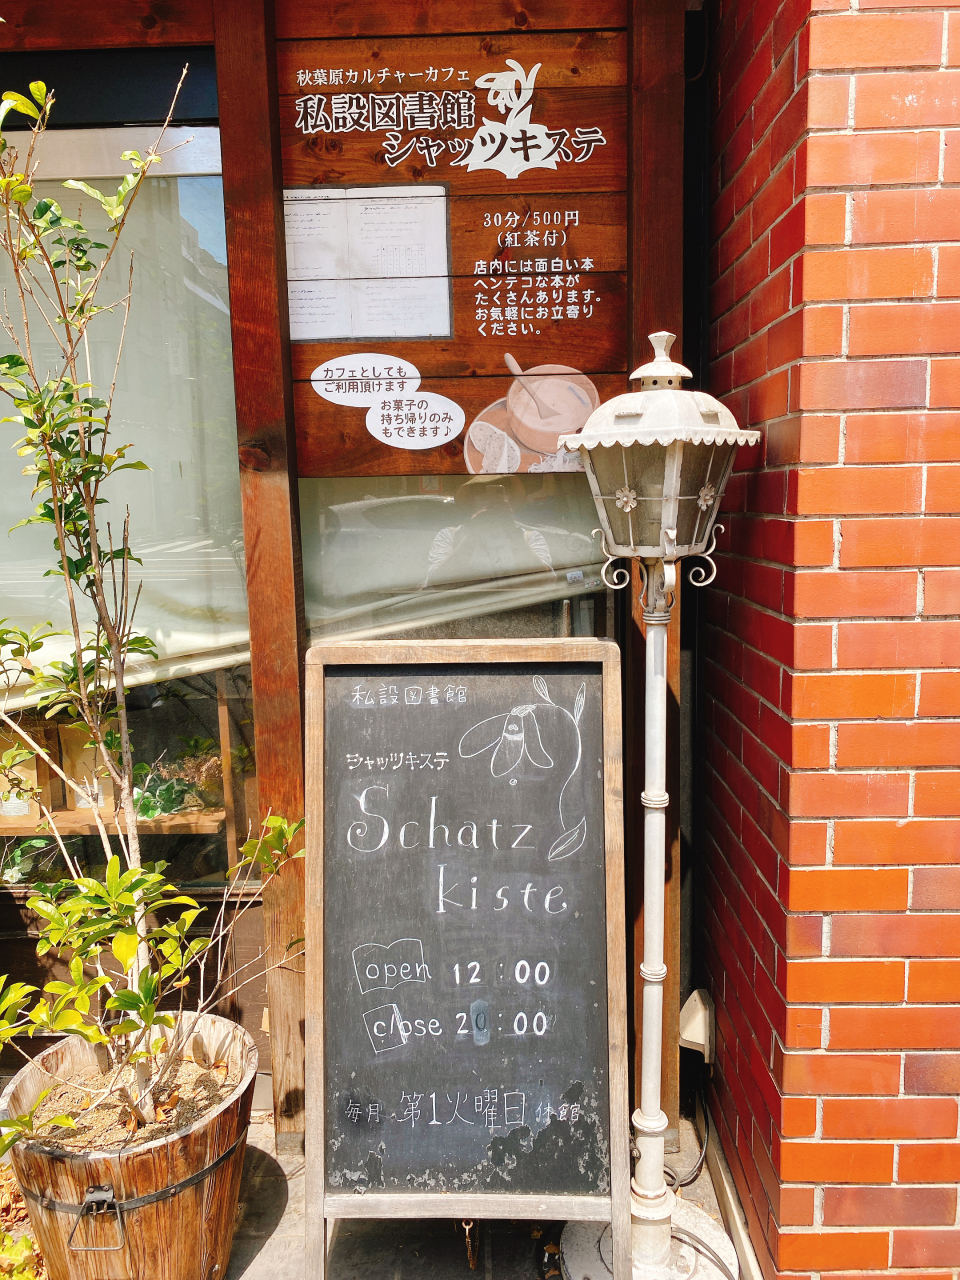 秋葉原カルチャーカフェ
私設図書館
シャッツキステ
30分/500円
(紅茶付)
店内には面白い本
ヘンテコな本が
たくさんあります。
お気軽にお立寄り
ください。
カフェとしても
ご利用頂けます
お菓子の
持ち帰りのみ
もできます♪
私設図書館
シャッツキステ
Schatz
kiste
open 12:00
close 20:00
毎月 第1火曜日 休館